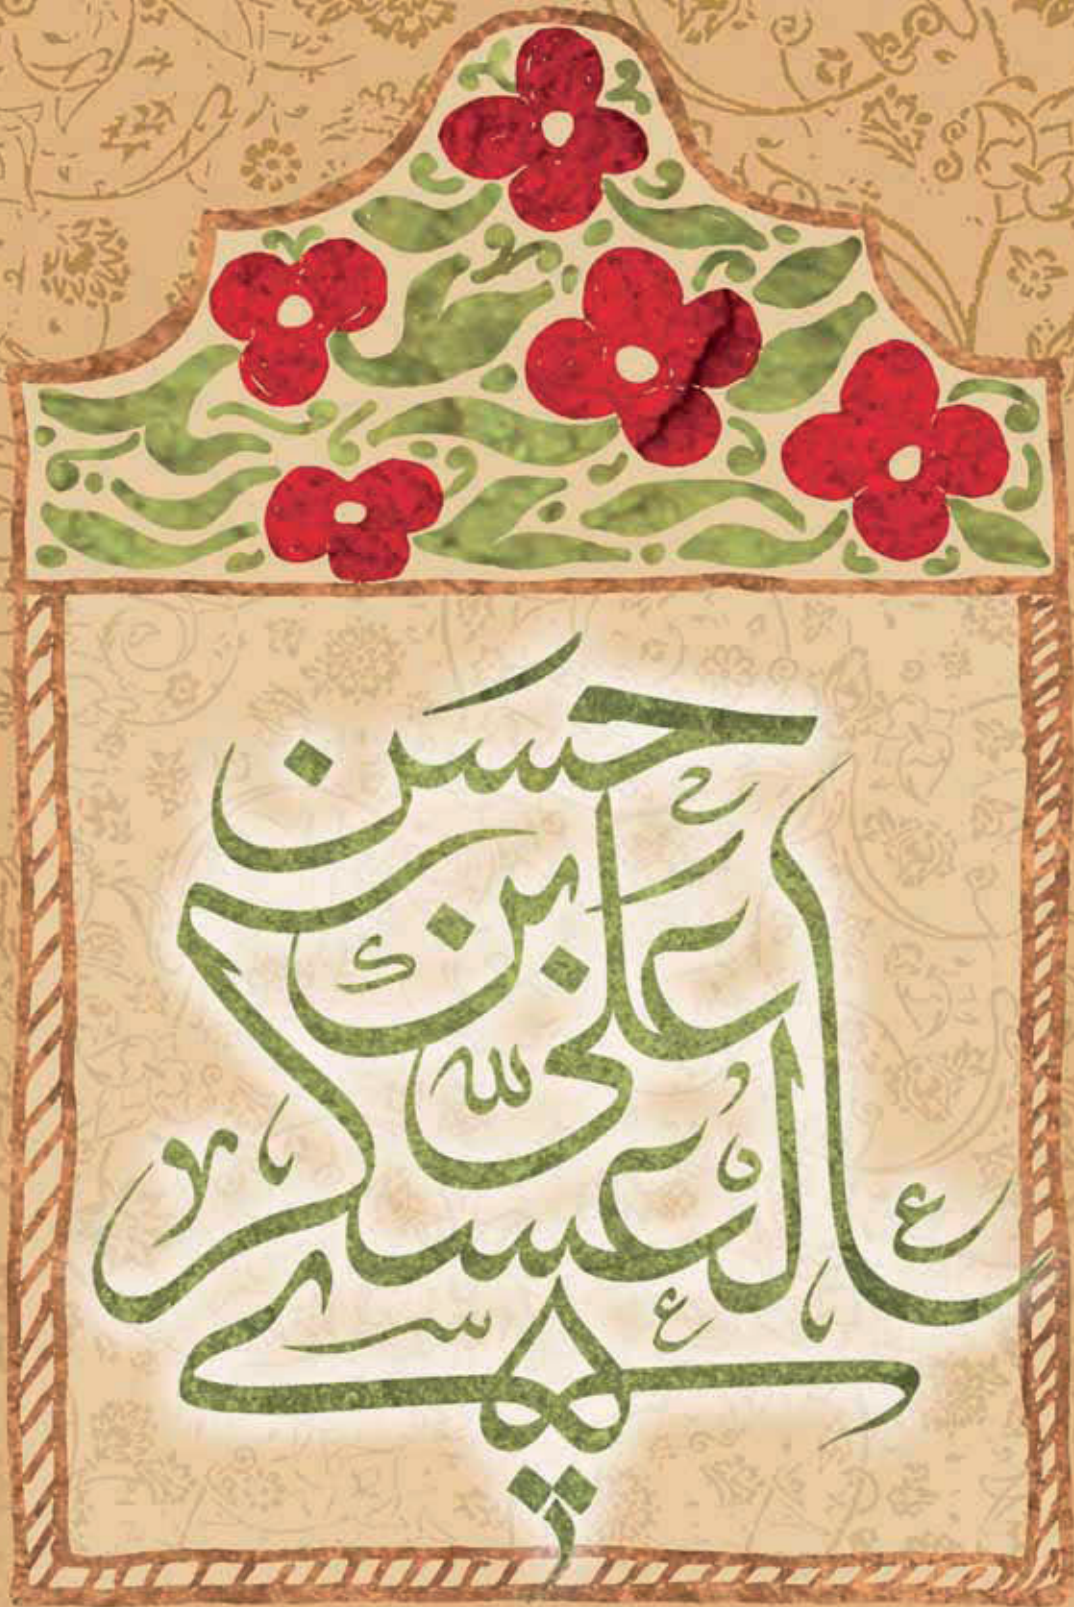 حسن
بن
علی
العسکری